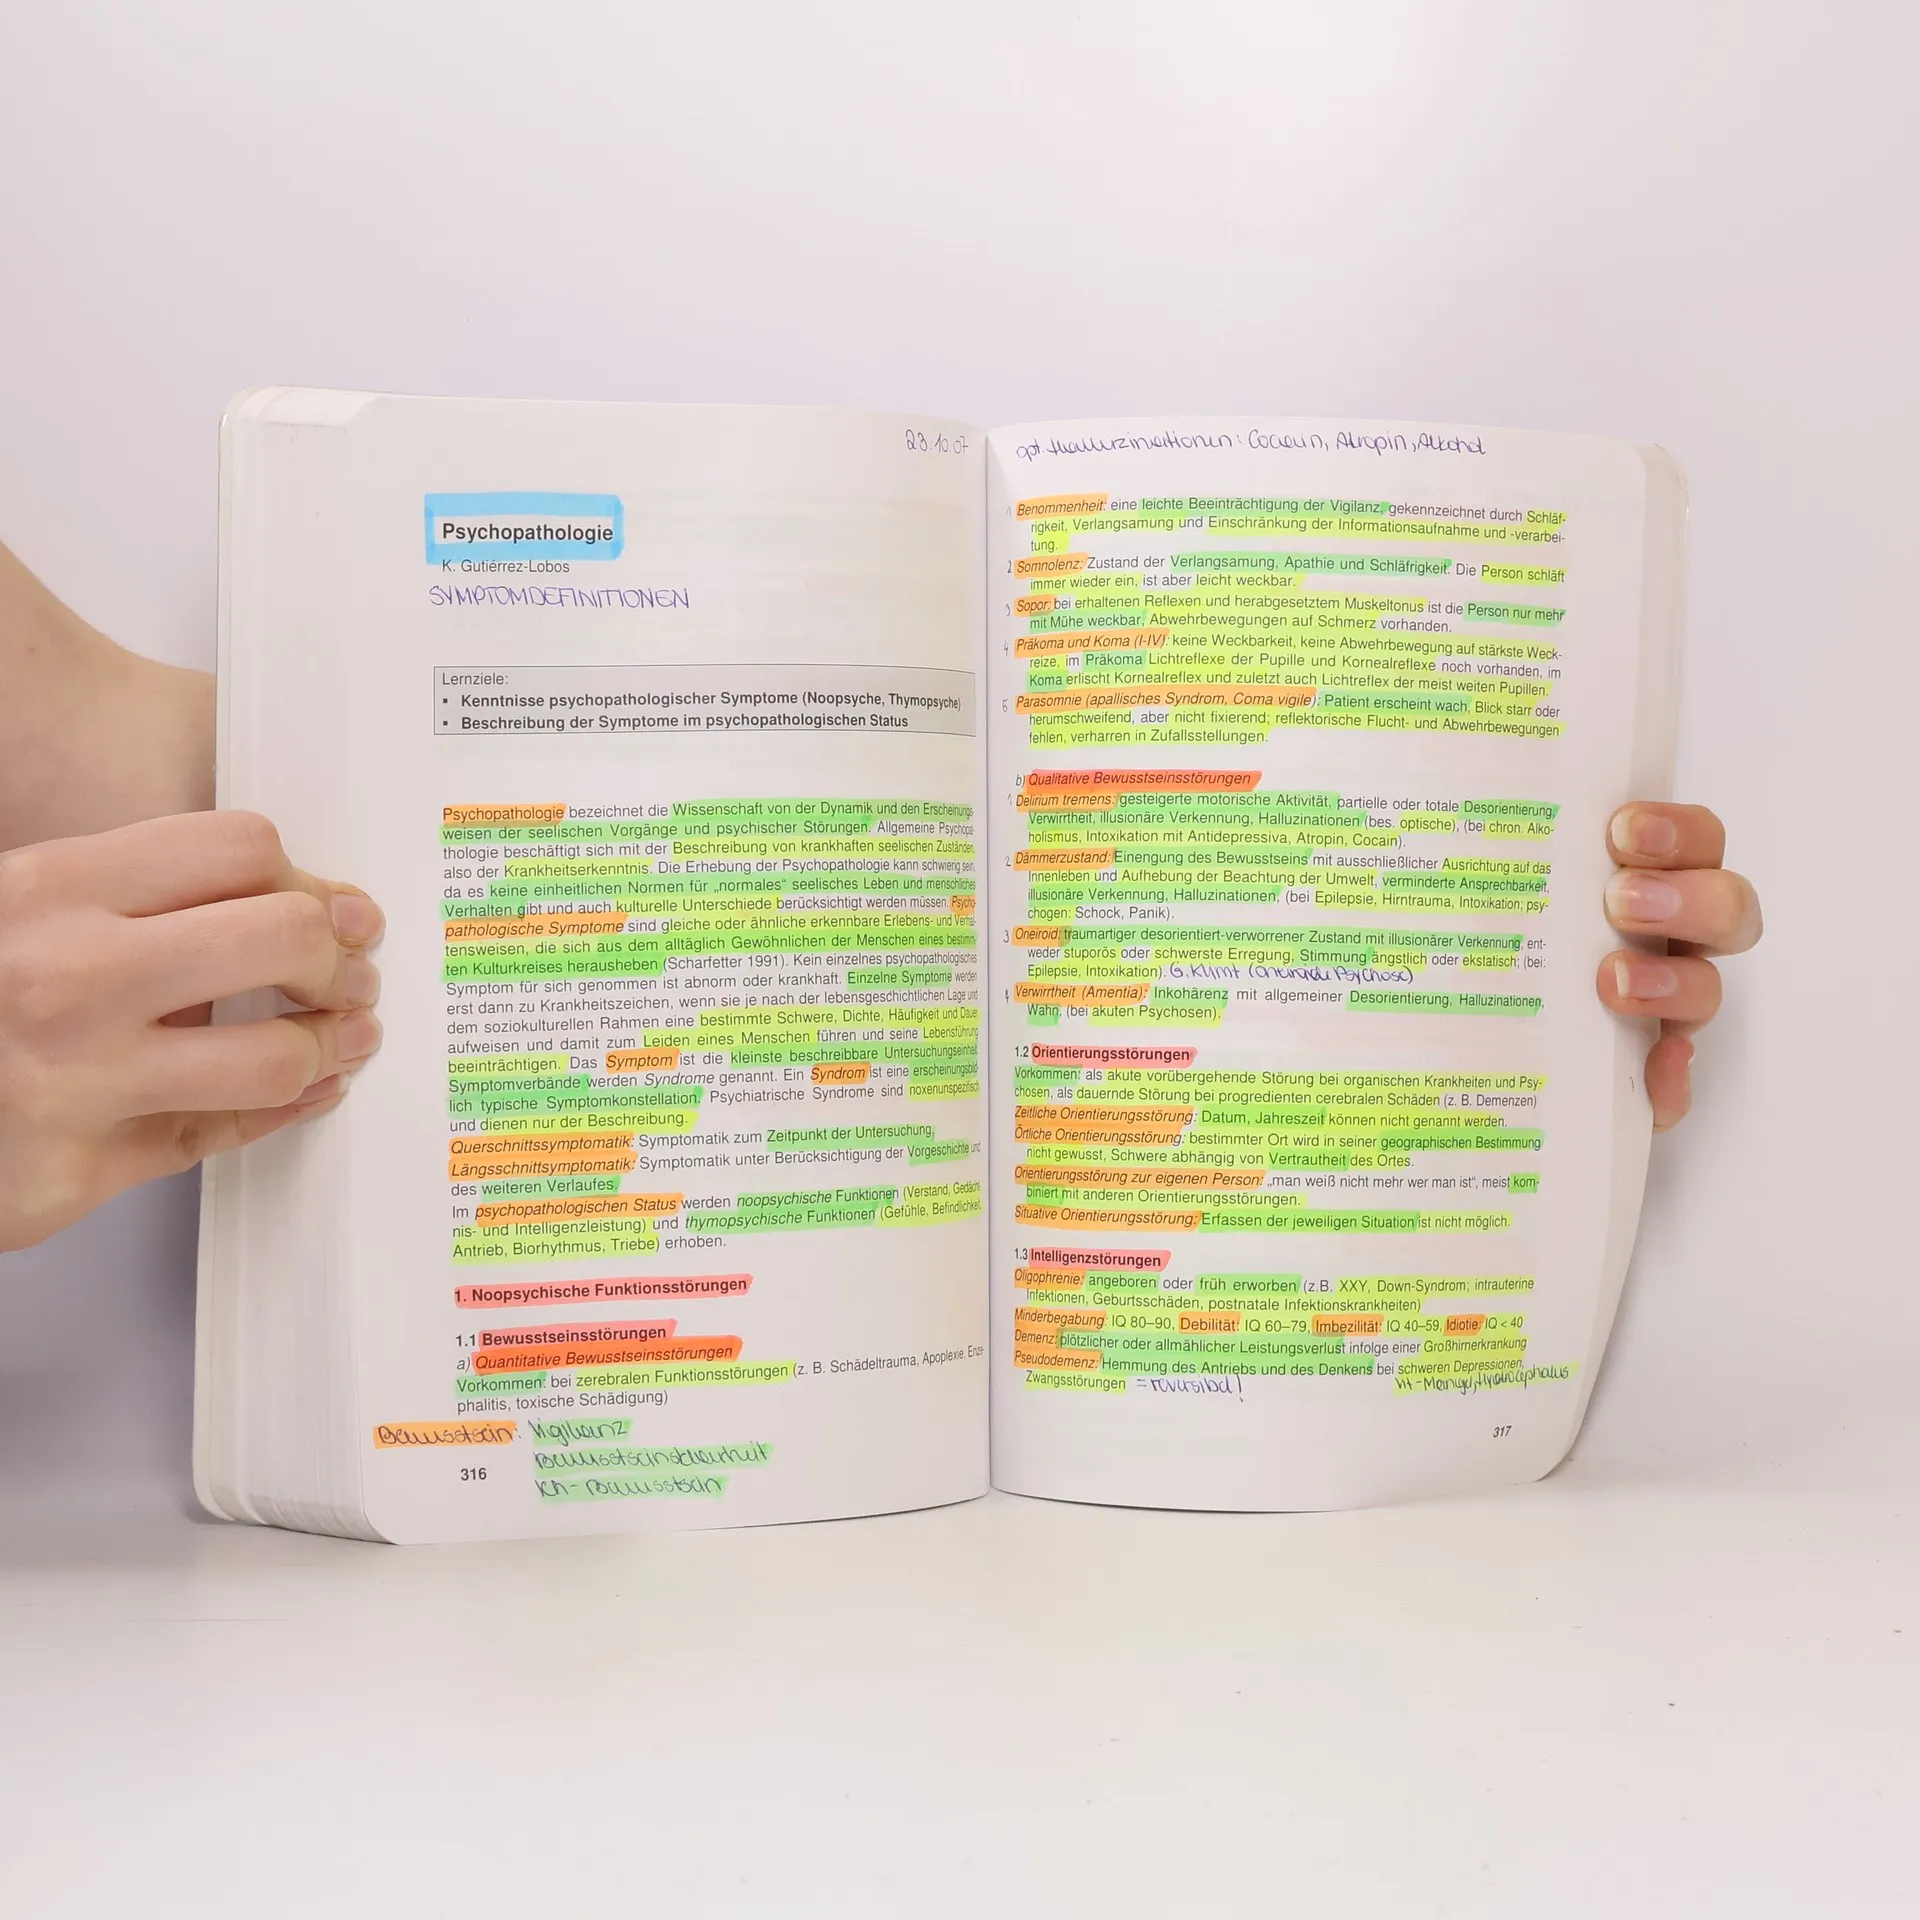 23.10.07
Psychopathologie
K. Gutiérrez-Lobos
SYMPTOMDEFINITIONEN
Lernziele:
▪ Kenntnisse psychopathologischer Symptome (Noopsyche, Thymopsyche)
▪ Beschreibung der Symptome im psychopathologischen Status
Psychopathologie bezeichnet die Wissenschaft von der Dynamik und den Erscheinungs-
weisen der seelischen Vorgänge und psychischer Störungen. Allgemeine Psychopa-
thologie beschäftigt sich mit der Beschreibung von krankhaften seelischen Zuständen,
also der Krankheitserkenntnis. Die Erhebung der Psychopathologie kann schwierig sein,
da es keine einheitlichen Normen für „normales“ seelisches Leben und menschliches
Verhalten gibt und auch kulturelle Unterschiede berücksichtigt werden müssen. Psycho-
pathologische Symptome sind gleiche oder ähnliche erkennbare Erlebens- und Verhal-
tensweisen, die sich aus dem alltäglich Gewöhnlichen der Menschen eines bestimm-
ten Kulturkreises herausheben (Scharfetter 1991). Kein einzelnes psychopathologisches
Symptom für sich genommen ist abnorm oder krankhaft. Einzelne Symptome werden
erst dann zu Krankheitszeichen, wenn sie je nach der lebensgeschichtlichen Lage und
dem soziokulturellen Rahmen eine bestimmte Schwere, Dichte, Häufigkeit und Dauer
aufweisen und damit zum Leiden eines Menschen führen und seine Lebensführung
beeinträchtigen. Das Symptom ist die kleinste beschreibbare Untersuchungseinheit
Symptomverbände werden Syndrome genannt. Ein Syndrom ist eine erscheinungsbild-
lich typische Symptomkonstellation. Psychiatrische Syndrome sind noxenunspezifisch
und dienen nur der Beschreibung.
Querschnittssymptomatik: Symptomatik zum Zeitpunkt der Untersuchung,
Längsschnittsymptomatik: Symptomatik unter Berücksichtigung der Vorgeschichte und
des weiteren Verlaufes.
Im psychopathologischen Status werden noopsychische Funktionen (Verstand, Gedächt-
nis- und Intelligenzleistung) und thymopsychische Funktionen (Gefühle, Befindlichkeit,
Antrieb, Biorhythmus, Triebe) erhoben.
1. Noopsychische Funktionsstörungen
1.1 Bewusstseinsstörungen
a) Quantitative Bewusstseinsstörungen
Vorkommen: bei zerebralen Funktionsstörungen (z. B. Schädeltrauma, Apoplexie, Enze-
phalitis, toxische Schädigung)
Bewusstsein: Vigilanz
Bewusstseinsklarheit
Ich-Bewusstsein
316
opt. Halluzinationen: Cocain, Atropin, Alkohol
1 Benommenheit: eine leichte Beeinträchtigung der Vigilanz, gekennzeichnet durch Schläf-
rigkeit, Verlangsamung und Einschränkung der Informationsaufnahme und -verarbei-
tung.
2 Somnolenz: Zustand der Verlangsamung, Apathie und Schläfrigkeit. Die Person schläft
immer wieder ein, ist aber leicht weckbar.
3 Sopor: bei erhaltenen Reflexen und herabgesetztem Muskeltonus ist die Person nur mehr
mit Mühe weckbar, Abwehrbewegungen auf Schmerz vorhanden.
4 Präkoma und Koma (I-IV): keine Weckbarkeit, keine Abwehrbewegung auf stärkste Weck-
reize, im Präkoma Lichtreflexe der Pupille und Kornealreflexe noch vorhanden, im
Koma erlischt Kornealreflex und zuletzt auch Lichtreflex der meist weiten Pupillen.
5 Parasomnie (apallisches Syndrom, Coma vigile): Patient erscheint wach, Blick starr oder
herumschweifend, aber nicht fixierend; reflektorische Flucht- und Abwehrbewegungen
fehlen, verharren in Zufallsstellungen.
b) Qualitative Bewusstseinsstörungen
1 Delirium tremens: gesteigerte motorische Aktivität, partielle oder totale Desorientierung,
Verwirrtheit, illusionäre Verkennung, Halluzinationen (bes. optische), (bei chron. Alko-
holismus, Intoxikation mit Antidepressiva, Atropin, Cocain).
2 Dämmerzustand: Einengung des Bewusstseins mit ausschließlicher Ausrichtung auf das
Innenleben und Aufhebung der Beachtung der Umwelt, verminderte Ansprechbarkeit,
illusionäre Verkennung, Halluzinationen, (bei Epilepsie, Hirntrauma, Intoxikation; psy-
chogen: Schock, Panik).
3 Oneiroid: traumartiger desorientiert-verworrener Zustand mit illusionärer Verkennung, ent-
weder stuporös oder schwerste Erregung, Stimmung ängstlich oder ekstatisch; (bei:
Epilepsie, Intoxikation). G. Klimt (oneiroide Psychose)
4 Verwirrtheit (Amentia): Inkohärenz mit allgemeiner Desorientierung, Halluzinationen,
Wahn, (bei akuten Psychosen).
1.2 Orientierungsstörungen
Vorkommen: als akute vorübergehende Störung bei organischen Krankheiten und Psy-
chosen, als dauernde Störung bei progredienten cerebralen Schäden (z. B. Demenzen)
Zeitliche Orientierungsstörung: Datum, Jahreszeit können nicht genannt werden.
Örtliche Orientierungsstörung: bestimmter Ort wird in seiner geographischen Bestimmung
nicht gewusst, Schwere abhängig von Vertrautheit des Ortes.
Orientierungsstörung zur eigenen Person: „man weiß nicht mehr wer man ist“, meist kom-
biniert mit anderen Orientierungsstörungen.
Situative Orientierungsstörung: Erfassen der jeweiligen Situation ist nicht möglich.
1.3 Intelligenzstörungen
Oligophrenie: angeboren oder früh erworben (z.B. XXY, Down-Syndrom; intrauterine
Infektionen, Geburtsschäden, postnatale Infektionskrankheiten)
Minderbegabung: IQ 80–90, Debilität: IQ 60–79, Imbezilität: IQ 40–59, Idiotie: IQ < 40
Demenz: plötzlicher oder allmählicher Leistungsverlust infolge einer Großhirnerkrankung
Pseudodemenz: Hemmung des Antriebs und des Denkens bei schweren Depressionen,
Zwangsstörungen = reversibel! Vit-Mangel, Hydrocephalus
317